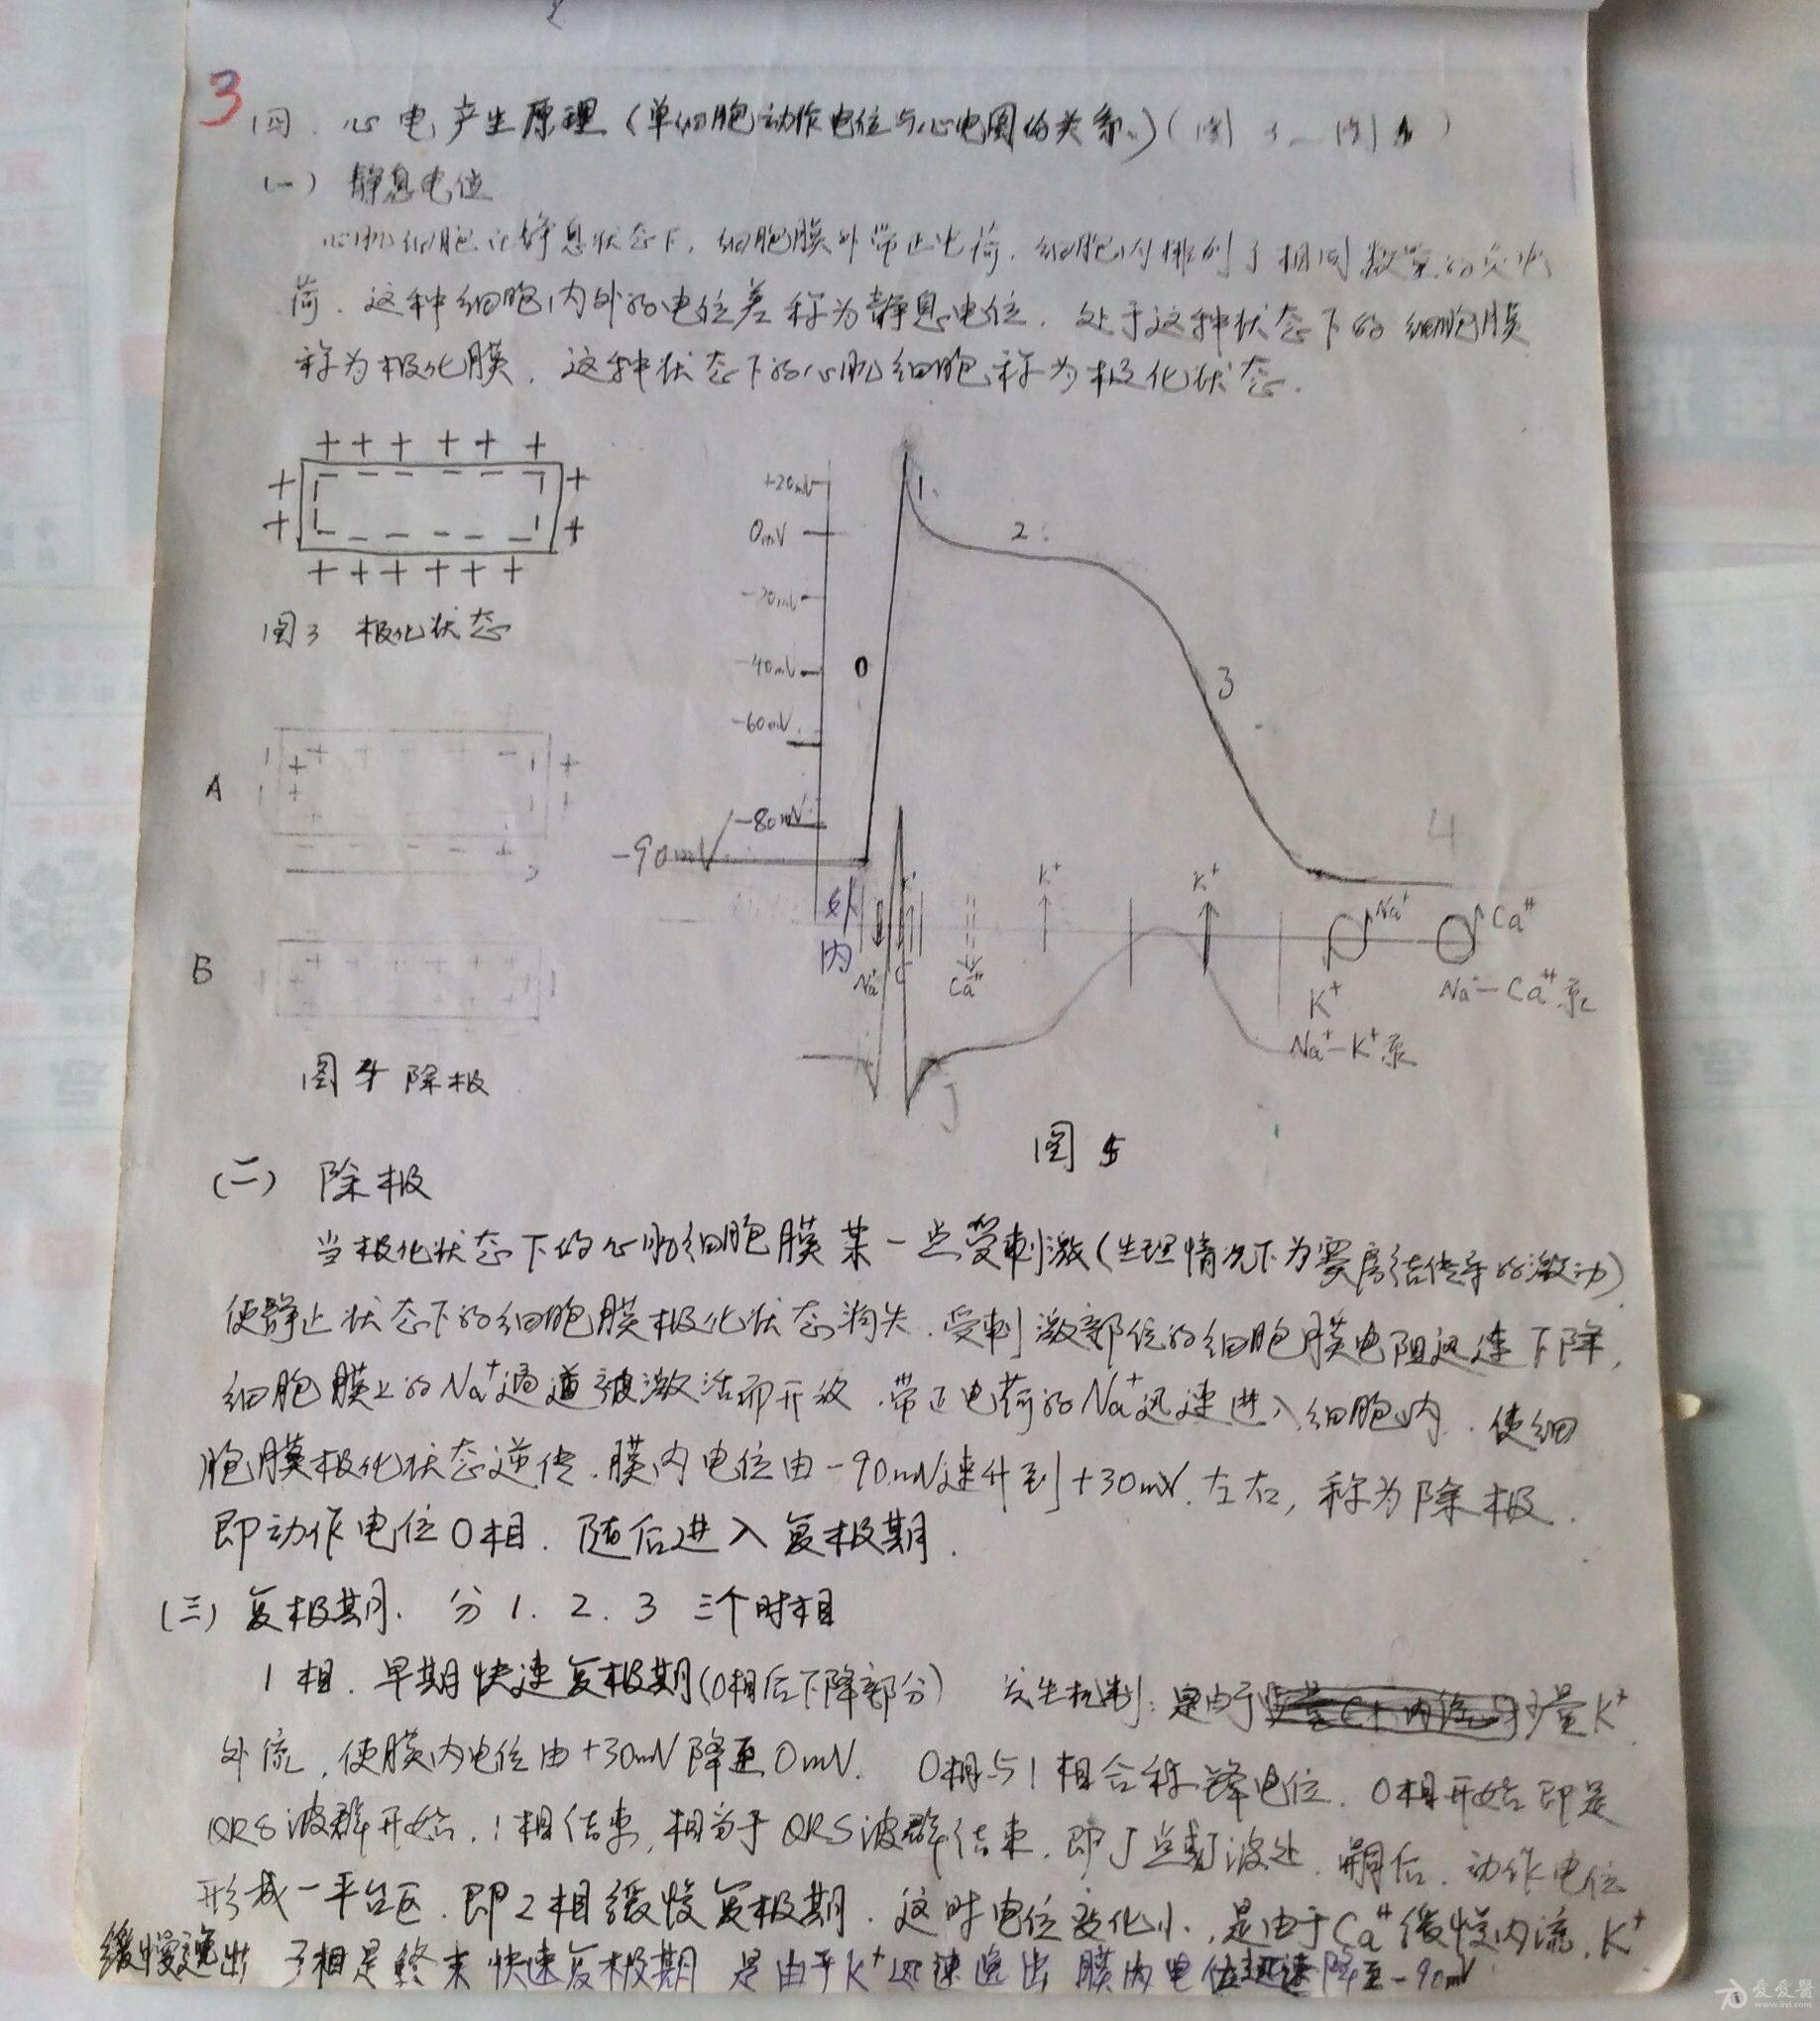 3
四、心电产生原理(单细胞动作电位与心电图的关系)(图3—图5)
(一) 静息电位
心肌细胞在静息状态下,细胞膜外带正电荷,细胞内排列了相同数量的负电
荷,这种细胞内外的电位差称为静息电位,处于这种状态下的细胞膜
称为极化膜,这种状态下的心肌细胞称为极化状态.
图3 极化状态
A
B
图4 除极
+20mV
0mV
-20mV
-40mV
-60mV
-80mV
-90mV
0
1
2
3
4
外
内
Na⁺
Ca⁺⁺
K⁺
K⁺
Na⁺
K⁺
Na⁺—K⁺泵
Ca⁺⁺
Na⁺—Ca⁺⁺泵
J
图5
(二) 除极
当极化状态下的心肌细胞膜某一点受刺激(生理情况下为窦房结传导的激动)
使静止状态下的细胞膜极化状态消失,受刺激部位的细胞膜电阻迅速下降,
细胞膜上的Na⁺通道被激活而开放,带正电荷的Na⁺迅速进入细胞内,使细
胞膜极化状态逆传,膜内电位由-90mV速升到+30mV左右,称为除极.
即动作电位0相.随后进入复极期.
(三) 复极期. 分1.2.3 三个时相
1相.早期快速复极期(0相后下降部分) 发生机制:是由于少量K⁺
外流,使膜内电位由+30mV降至0mV. 0相与1相合称锋电位.0相开始即是
QRS波群开始,1相结束,相当于QRS波群结束,即J点或J波处.嗣后,动作电位
形成一平台区,即2相缓慢复极期.这时电位变化小,是由于Ca⁺⁺缓慢内流,K⁺
缓慢逸出 3相是终末快速复极期 是由于K⁺迅速逸出 膜内电位迅速降至-90mV
爱爱醫
www.iiyi.com